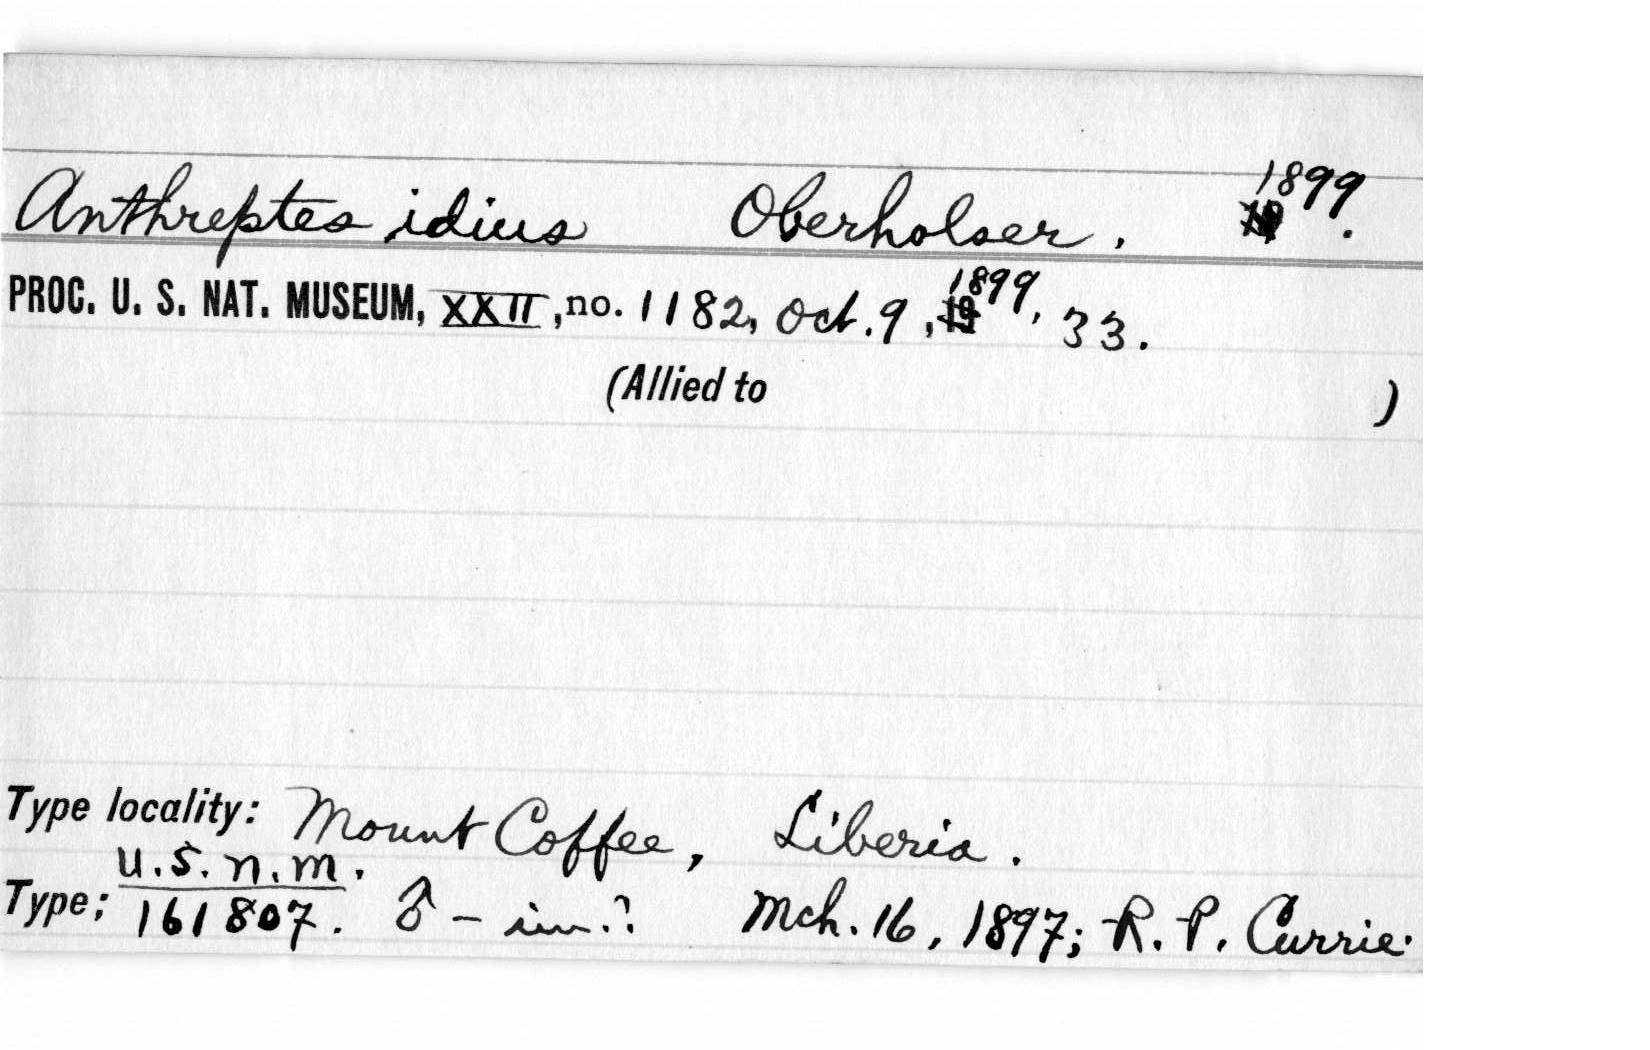 Anthreptes idius Oberholser. 1899.
PROC. U. S. NAT. MUSEUM, XXII, no. 1182, Oct. 9, 1899, 33.
(Allied to )
Type locality: Mount Coffee, Liberia.
U.S.N.M.
Type; 161807. ♂ - im.? Mch. 16, 1897; R. P. Currie.